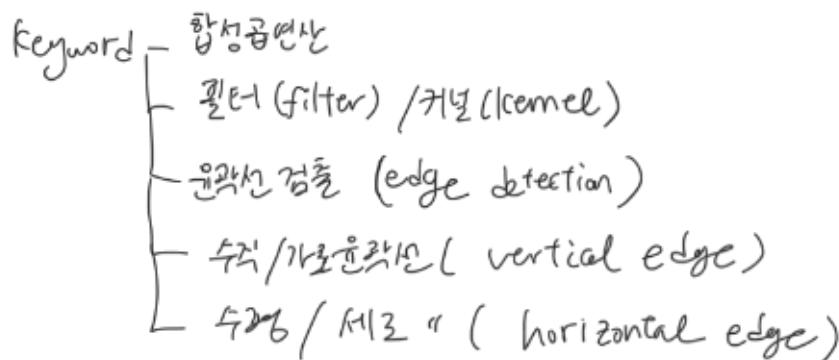 keyword - 합성곱연산
필터 (filter) / 커널 (kernel)
윤곽선 검출 (edge detection)
수직/가로윤곽선 ( vertical edge )
수평 / 세로 〃 ( horizontal edge )